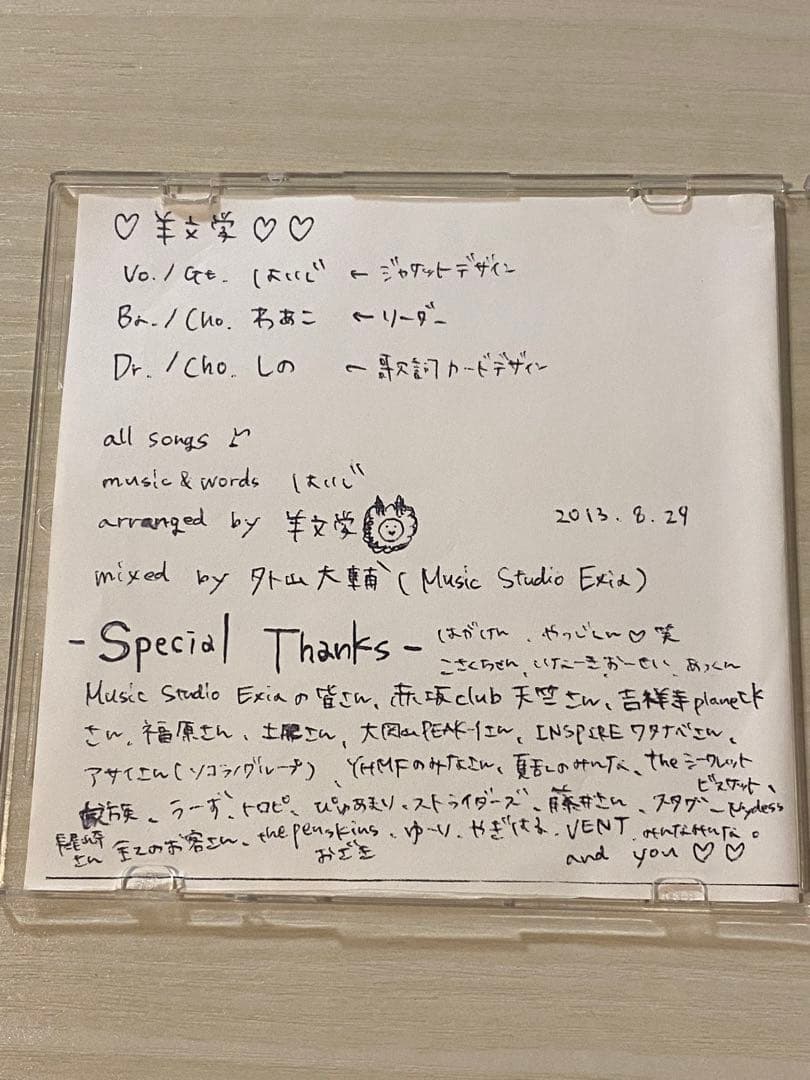 ♡ 羊文学 ♡ ♡
Vo./Gt. はいじ ← ジャケットデザイン
Ba./Cho. わあこ ← リーダー
Dr./Cho. しの ← 歌詞カードデザイン
all songs
music & words はいじ
arranged by 羊文学
2013.8.29
mixed by 外山大輔 (Music Studio Exia)
- Special Thanks - はがけん、やっじしん♡笑
あっくん
Music Studio Exiaの皆さん、赤坂club 天竺さん、吉祥寺planetK
さん、福原さん、土肥さん、大岡山PEAK-1さん、INSPIRE ワタナベさん、
アサイさん(ソコラノグループ)、YHMFのみなさん、夏話しのみんな、theシークレット
ビスケット、
族、うーず、トロピ、ぴりあまり、ストライダーズ、藤井さん、スタグ
尾崎さん 全てのお客さん、the penskins、ゆーり、やぎはる、VENT、みんなみんな。
おざき
and you ♡ ♡